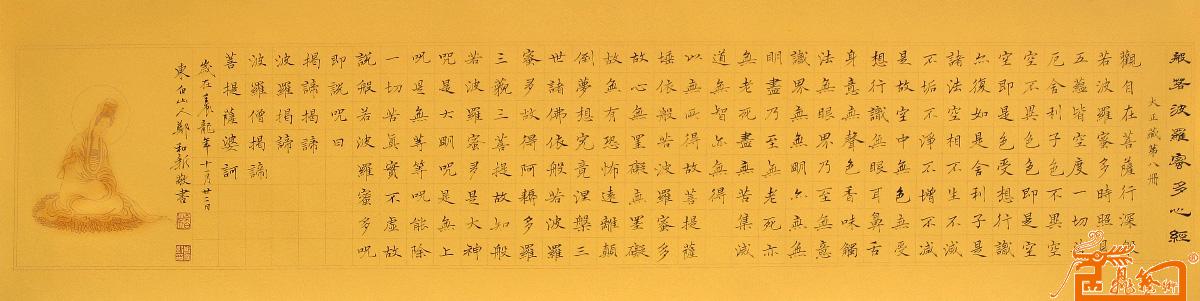 般若波羅蜜多心經
大正藏第八冊
觀自在菩薩行深般
若波羅蜜多時照見
五蘊皆空度一切
厄舍利子色不異空
空不異色色即是空
空即是色受想行識
亦復如是舍利子是
諸法空相不生不滅
不垢不淨不增不減
是故空中無色無受
想行識無眼耳鼻舌
身意無聲色香味觸
法無眼界乃至無意
識界無無明亦無無
明盡乃至無老死亦
無老死盡無苦集滅
道無智亦無得
以無所得故菩提薩
埵依般若波羅蜜多
故心無罣礙無罣礙
故無有恐怖遠離顛
倒夢想究竟涅槃三
世諸佛依般若波羅
蜜多故得阿耨多羅
三藐三菩提故知般
若波羅蜜多是大神
呪是大明呪是無上
呪是無等等呪能除
一切苦真實不虛故
說般若波羅蜜多呪
即說呪曰
揭諦揭諦
波羅揭諦
波羅僧揭諦
菩提薩婆訶
歲在龍年十一月廿二日
東白山人鄭和新敬書